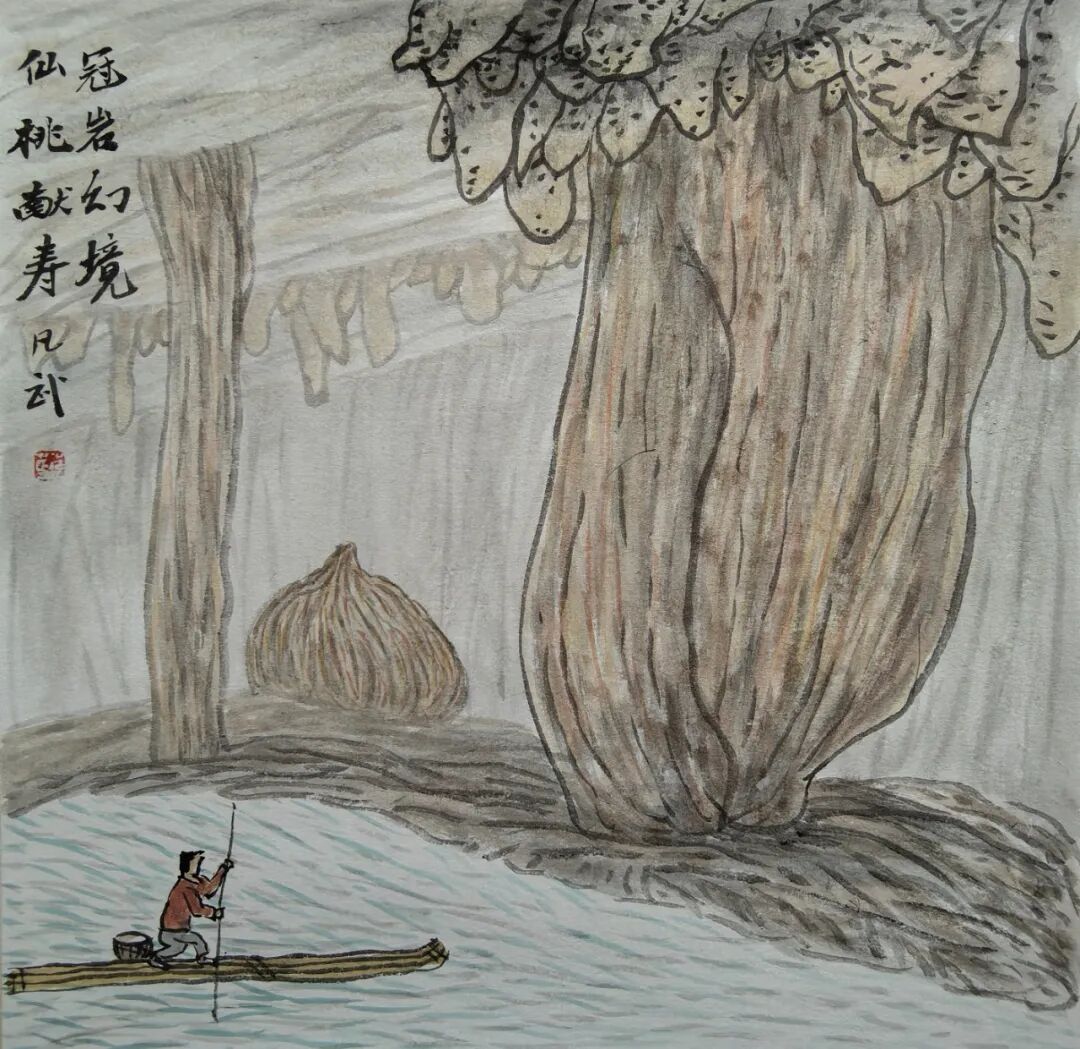 冠岩幻境
仙桃献寿 凡武